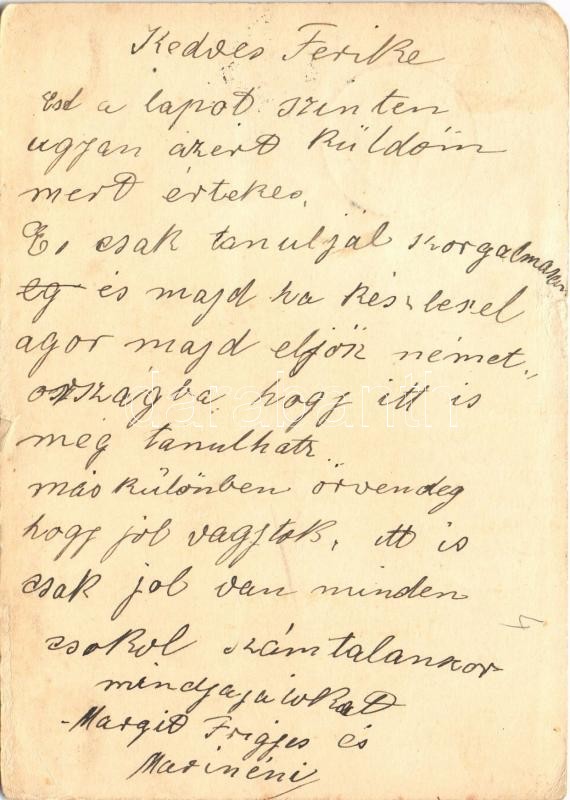 Kedves Ferike
Est a lapot szinten
ugjan azert küldöm
mert értekes,
És csak tanuljál szorgalmasan
és majd ha kés lesel
agor majd eljön német„
országba hogj itt is
még tanulhatz
más különben örvendeg
hogj jol vagjtok, itt is
csak jol van minden
csokol számtalanszor
mindjájátokat
Margit Frigjes és
Marinéni
darabanth